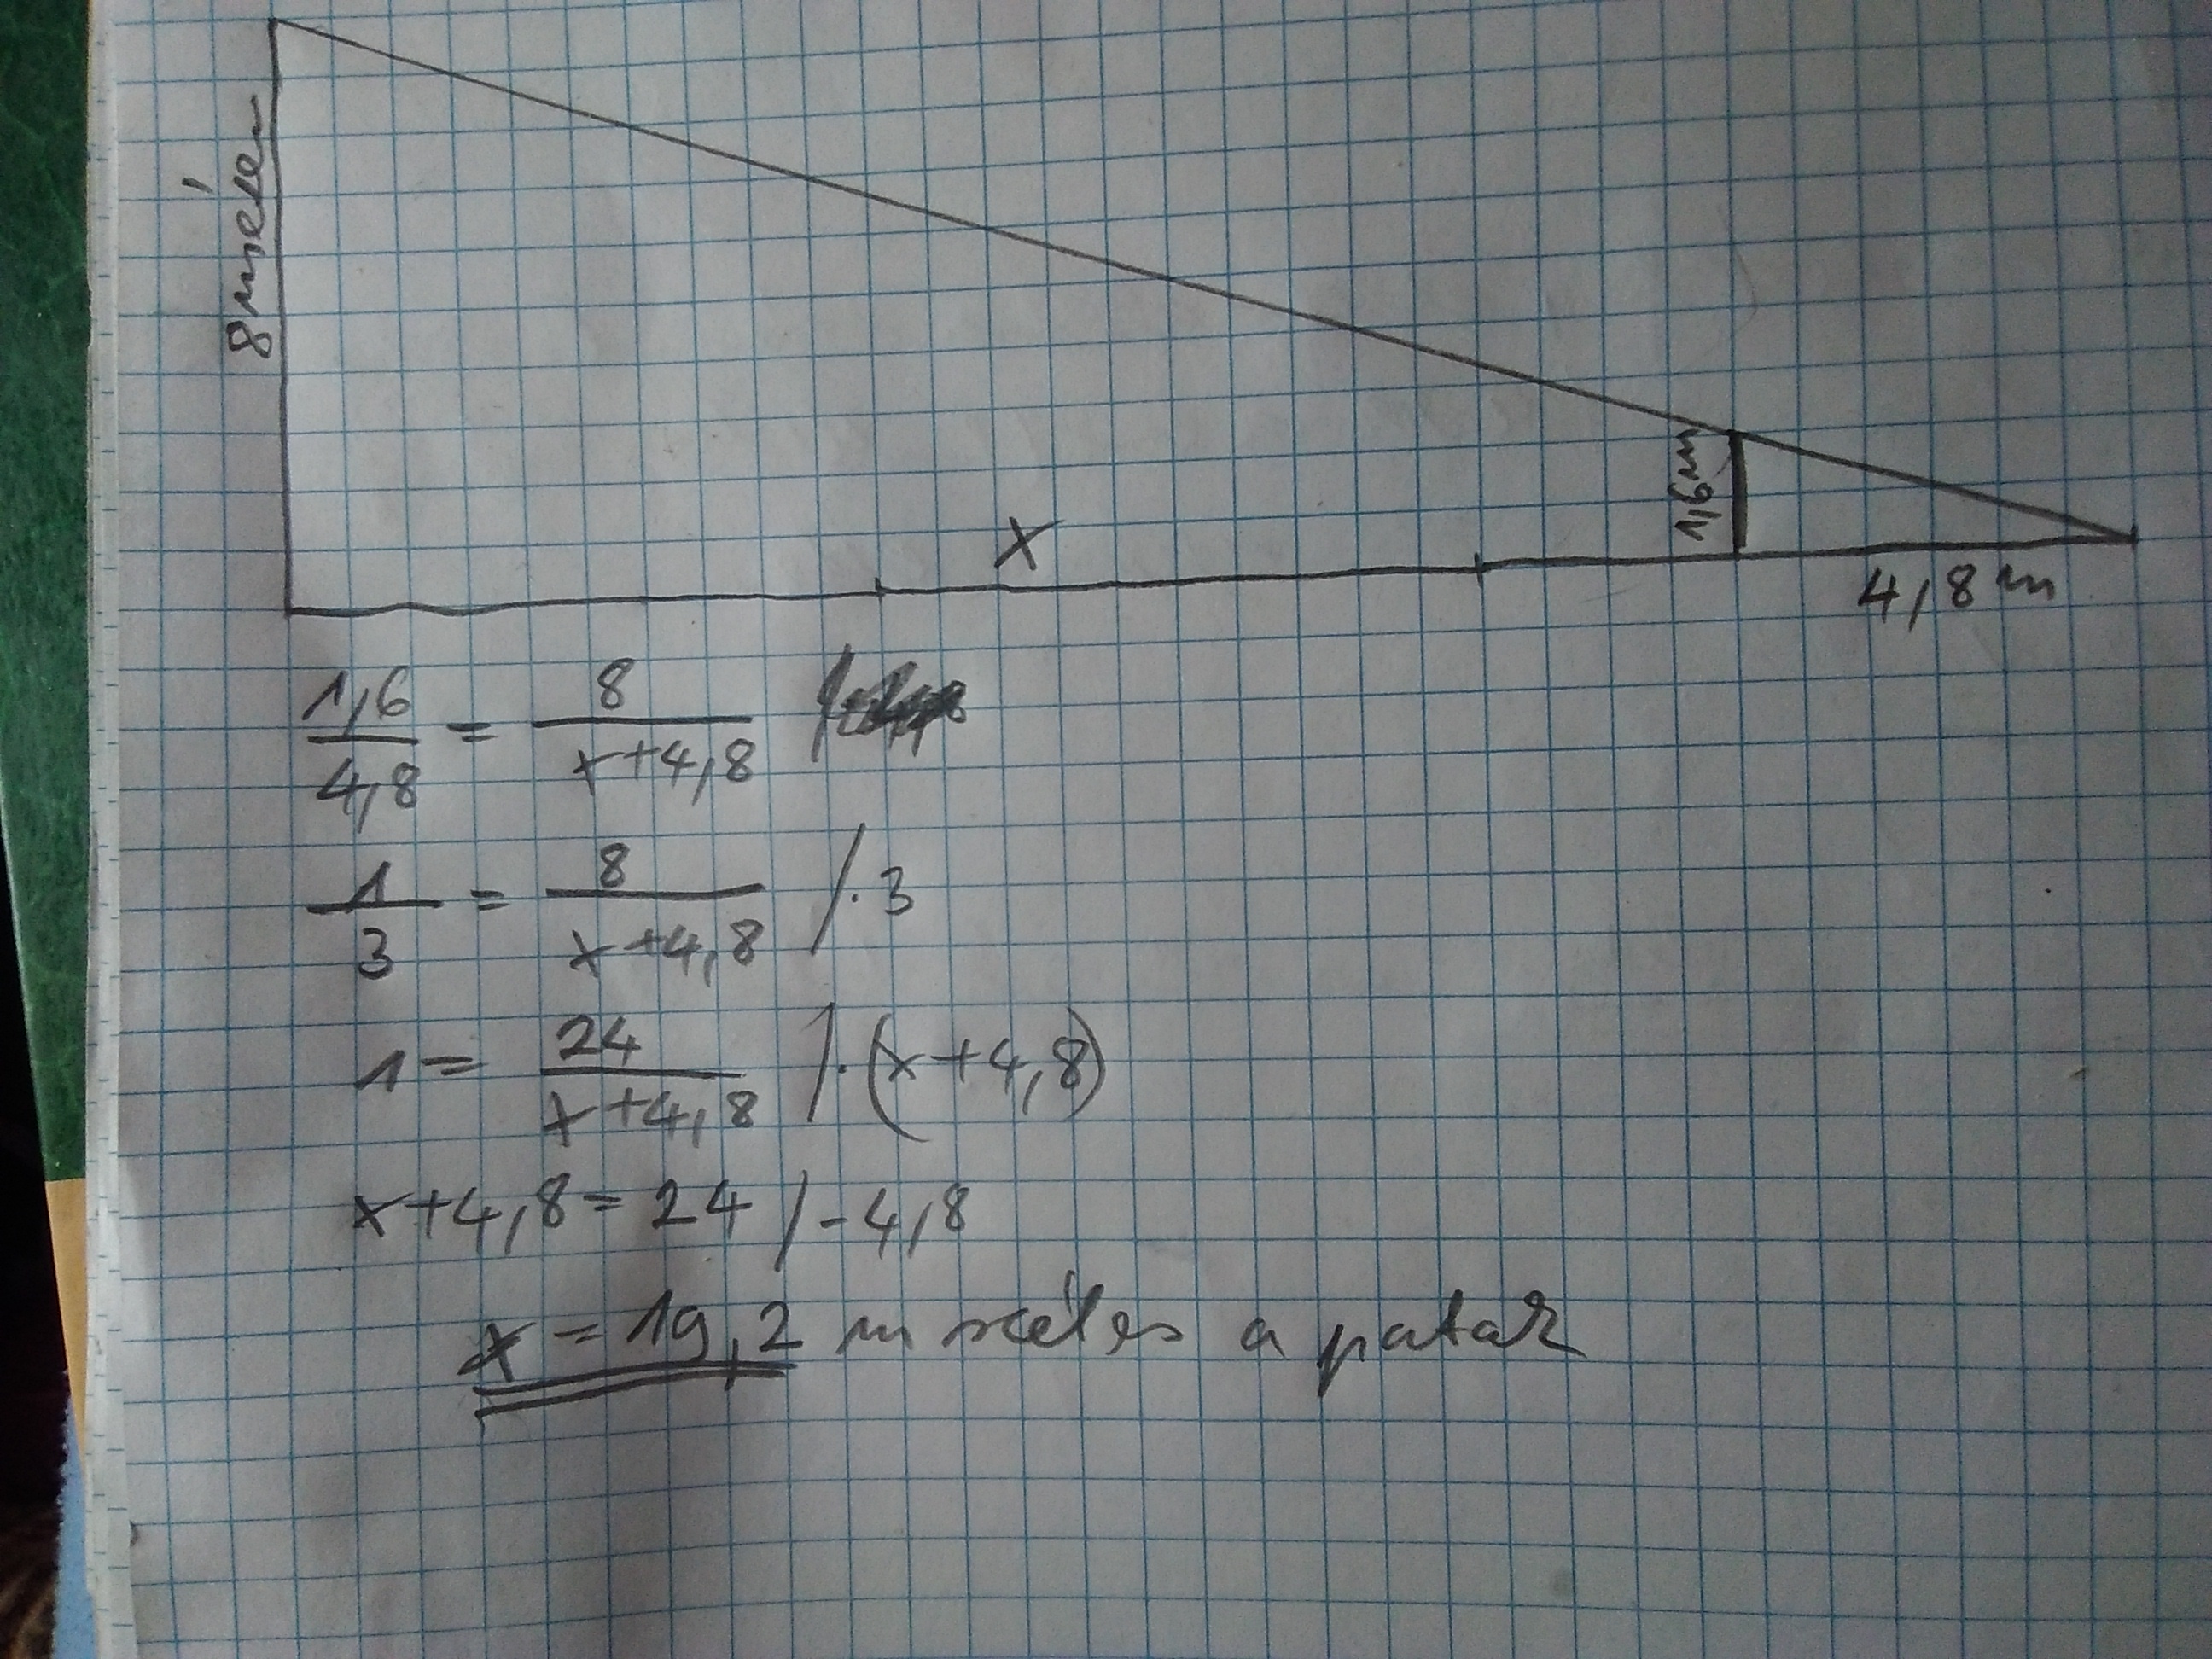 8 méter
x
1,6m
4,8 m
1,6/4,8 = 8/(x+4,8)
1/3 = 8/(x+4,8) /·3
1 = 24/(x+4,8) /·(x+4,8)
x+4,8=24 /-4,8
x = 19,2 m széles a patak